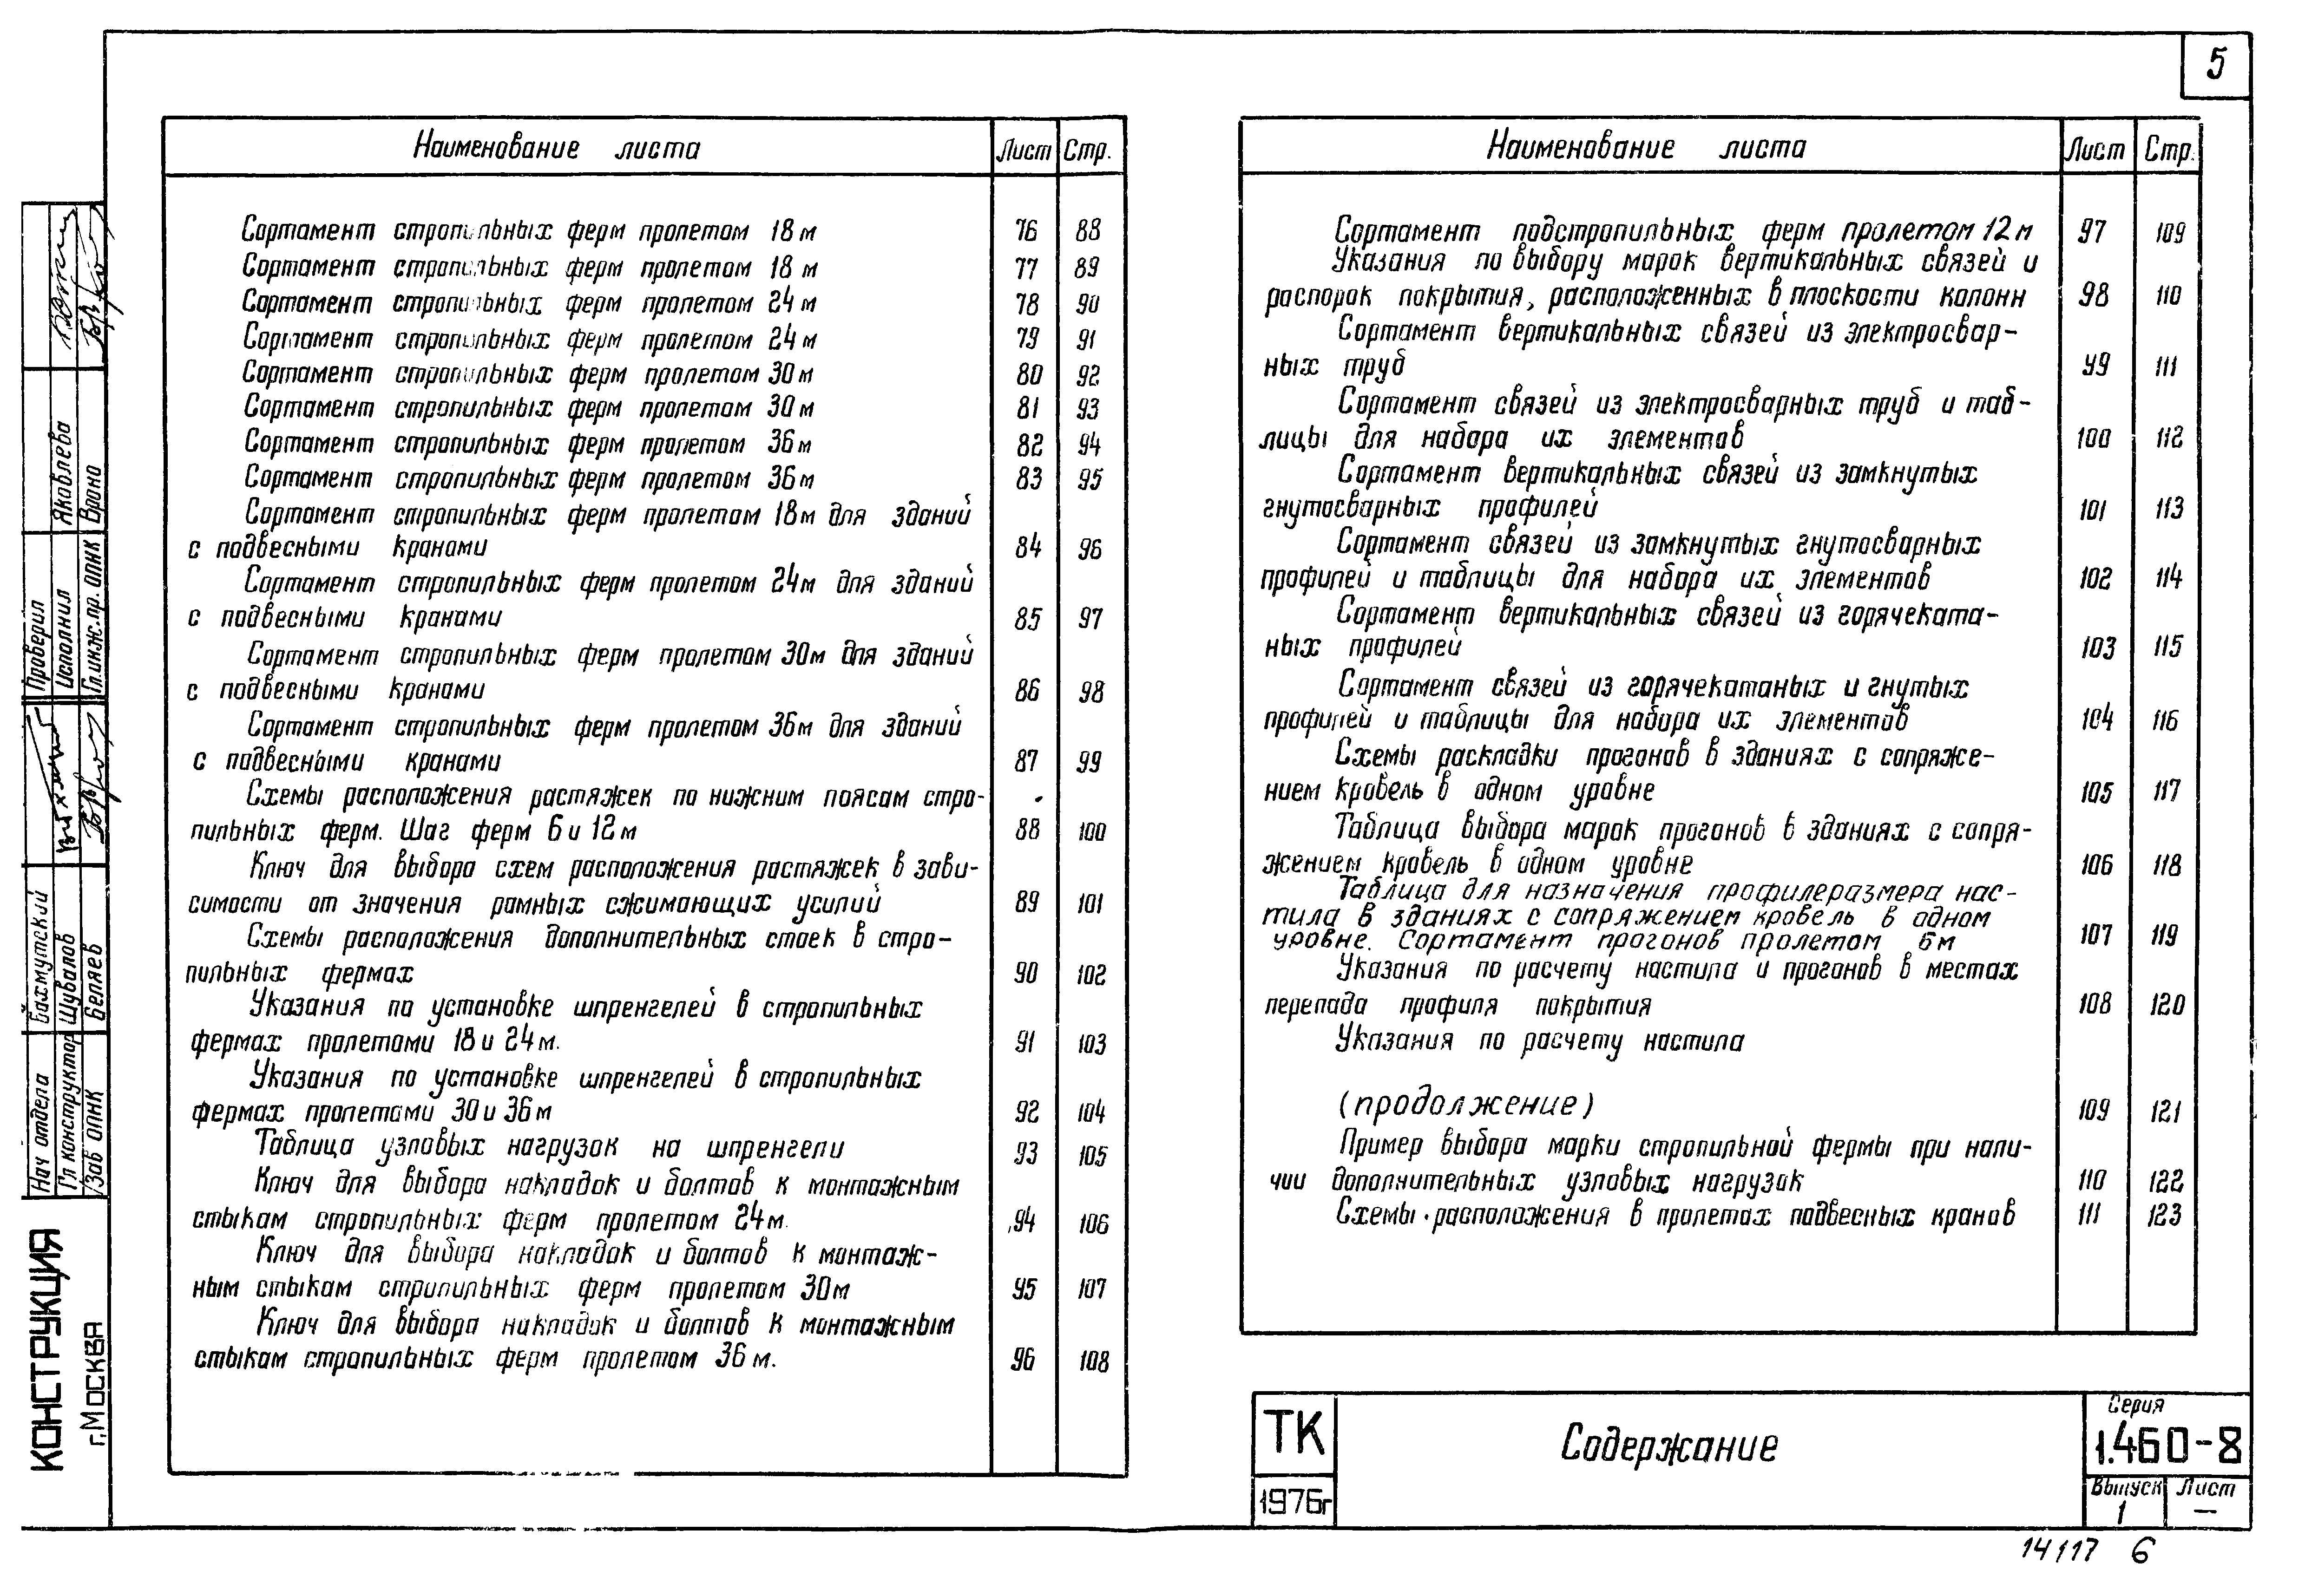 5
Наименование листа Лист Стр.
Сортамент стропильных ферм пролетом 18 м 76 88
Сортамент стропильных ферм пролетом 18 м 77 89
Сортамент стропильных ферм пролетом 24 м 78 90
Сортамент стропильных ферм пролетом 24 м 79 91
Сортамент стропильных ферм пролетом 30 м 80 92
Сортамент стропильных ферм пролетом 30 м 81 93
Сортамент стропильных ферм пролетом 36 м 82 94
Сортамент стропильных ферм пролетом 36 м 83 95
Сортамент стропильных ферм пролетом 18м для зданий
с подвесными кранами 84 96
Сортамент стропильных ферм пролетом 24м для зданий
с подвесными кранами 85 97
Сортамент стропильных ферм пролетом 30м для зданий
с подвесными кранами 86 98
Сортамент стропильных ферм пролетом 36м для зданий
с подвесными кранами 87 99
Схемы расположения растяжек по нижним поясам стро-
пильных ферм. Шаг ферм 6 и 12 м 88 100
Ключ для выбора схем расположения растяжек в зави-
симости от значения рамных сжимающих усилий 89 101
Схемы расположения дополнительных стоек в стро-
пильных фермах 90 102
Указания по установке шпренгелей в стропильных
фермах пролетами 18 и 24 м. 91 103
Указания по установке шпренгелей в стропильных
фермах пролетами 30 и 36 м 92 104
Таблица узловых нагрузок на шпренгели 93 105
Ключ для выбора накладок и болтов к монтажным
стыкам стропильных ферм пролетом 24 м. 94 106
Ключ для выбора накладок и болтов к монтаж-
ным стыкам стропильных ферм пролетом 30м 95 107
Ключ для выбора накладок и болтов к монтажным
стыкам стропильных ферм пролетом 36 м. 96 108
Наименование листа Лист Стр.
Сортамент подстропильных ферм пролетом 12 м 97 109
Указания по выбору марок вертикальных связей и
распорок покрытия, расположенных в плоскости колонн 98 110
Сортамент вертикальных связей из электросвар-
ных труб 99 111
Сортамент связей из электросварных труб и таб-
лицы для набора их элементов 100 112
Сортамент вертикальных связей из замкнутых
гнутосварных профилей 101 113
Сортамент связей из замкнутых гнутосварных
профилей и таблицы для набора их элементов 102 114
Сортамент вертикальных связей из горячеката-
ных профилей 103 115
Сортамент связей из горячекатаных и гнутых
профилей и таблицы для набора их элементов 104 116
Схемы раскладки прогонов в зданиях с сопряже-
нием кровель в одном уровне 105 117
Таблица выбора марок прогонов в зданиях с сопря-
жением кровель в одном уровне 106 118
Таблица для назначения профилеразмера нас-
тила в зданиях с сопряжением кровель в одном
уровне. Сортамент прогонов пролетом 6м 107 119
Указания по расчету настила и прогонов в местах
перепада профиля покрытия 108 120
Указания по расчету настила
(продолжение) 109 121
Пример выбора марки стропильной фермы при нали-
чии дополнительных узловых нагрузок 110 122
Схемы расположения в пролетах подвесных кранов 111 123
ТК
1976г
Содержание
Серия
1.460-8
Выпуск
1
Лист
—
14117 6
Проверил
Исполнил Яковлева
Гл.инж.пр. ОПНК Врона
Нач отдела Бахмутский
Гл конструктор Шувалов
Зав ОПНК Беляев
КОНСТРУКЦИЯ
г.Москва